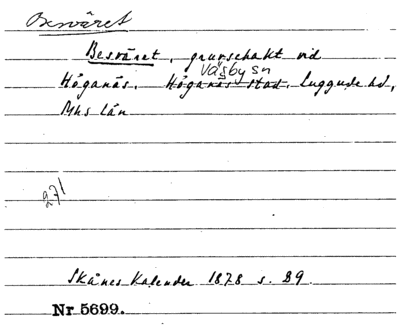 Besväret
Besväret, gruvschakt vid
Väsby sn
Höganäs. Höganäs stad. Luggude hd,
Mhs län
271
Skånes Kalender 1878 s. 89
Nr 5699.